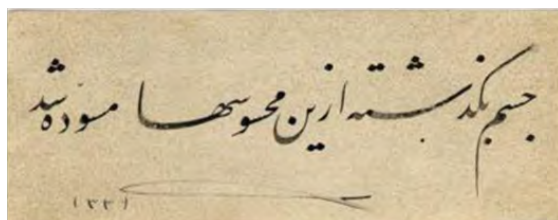 جسم بگذشته ازین محسوسها مسوده شد